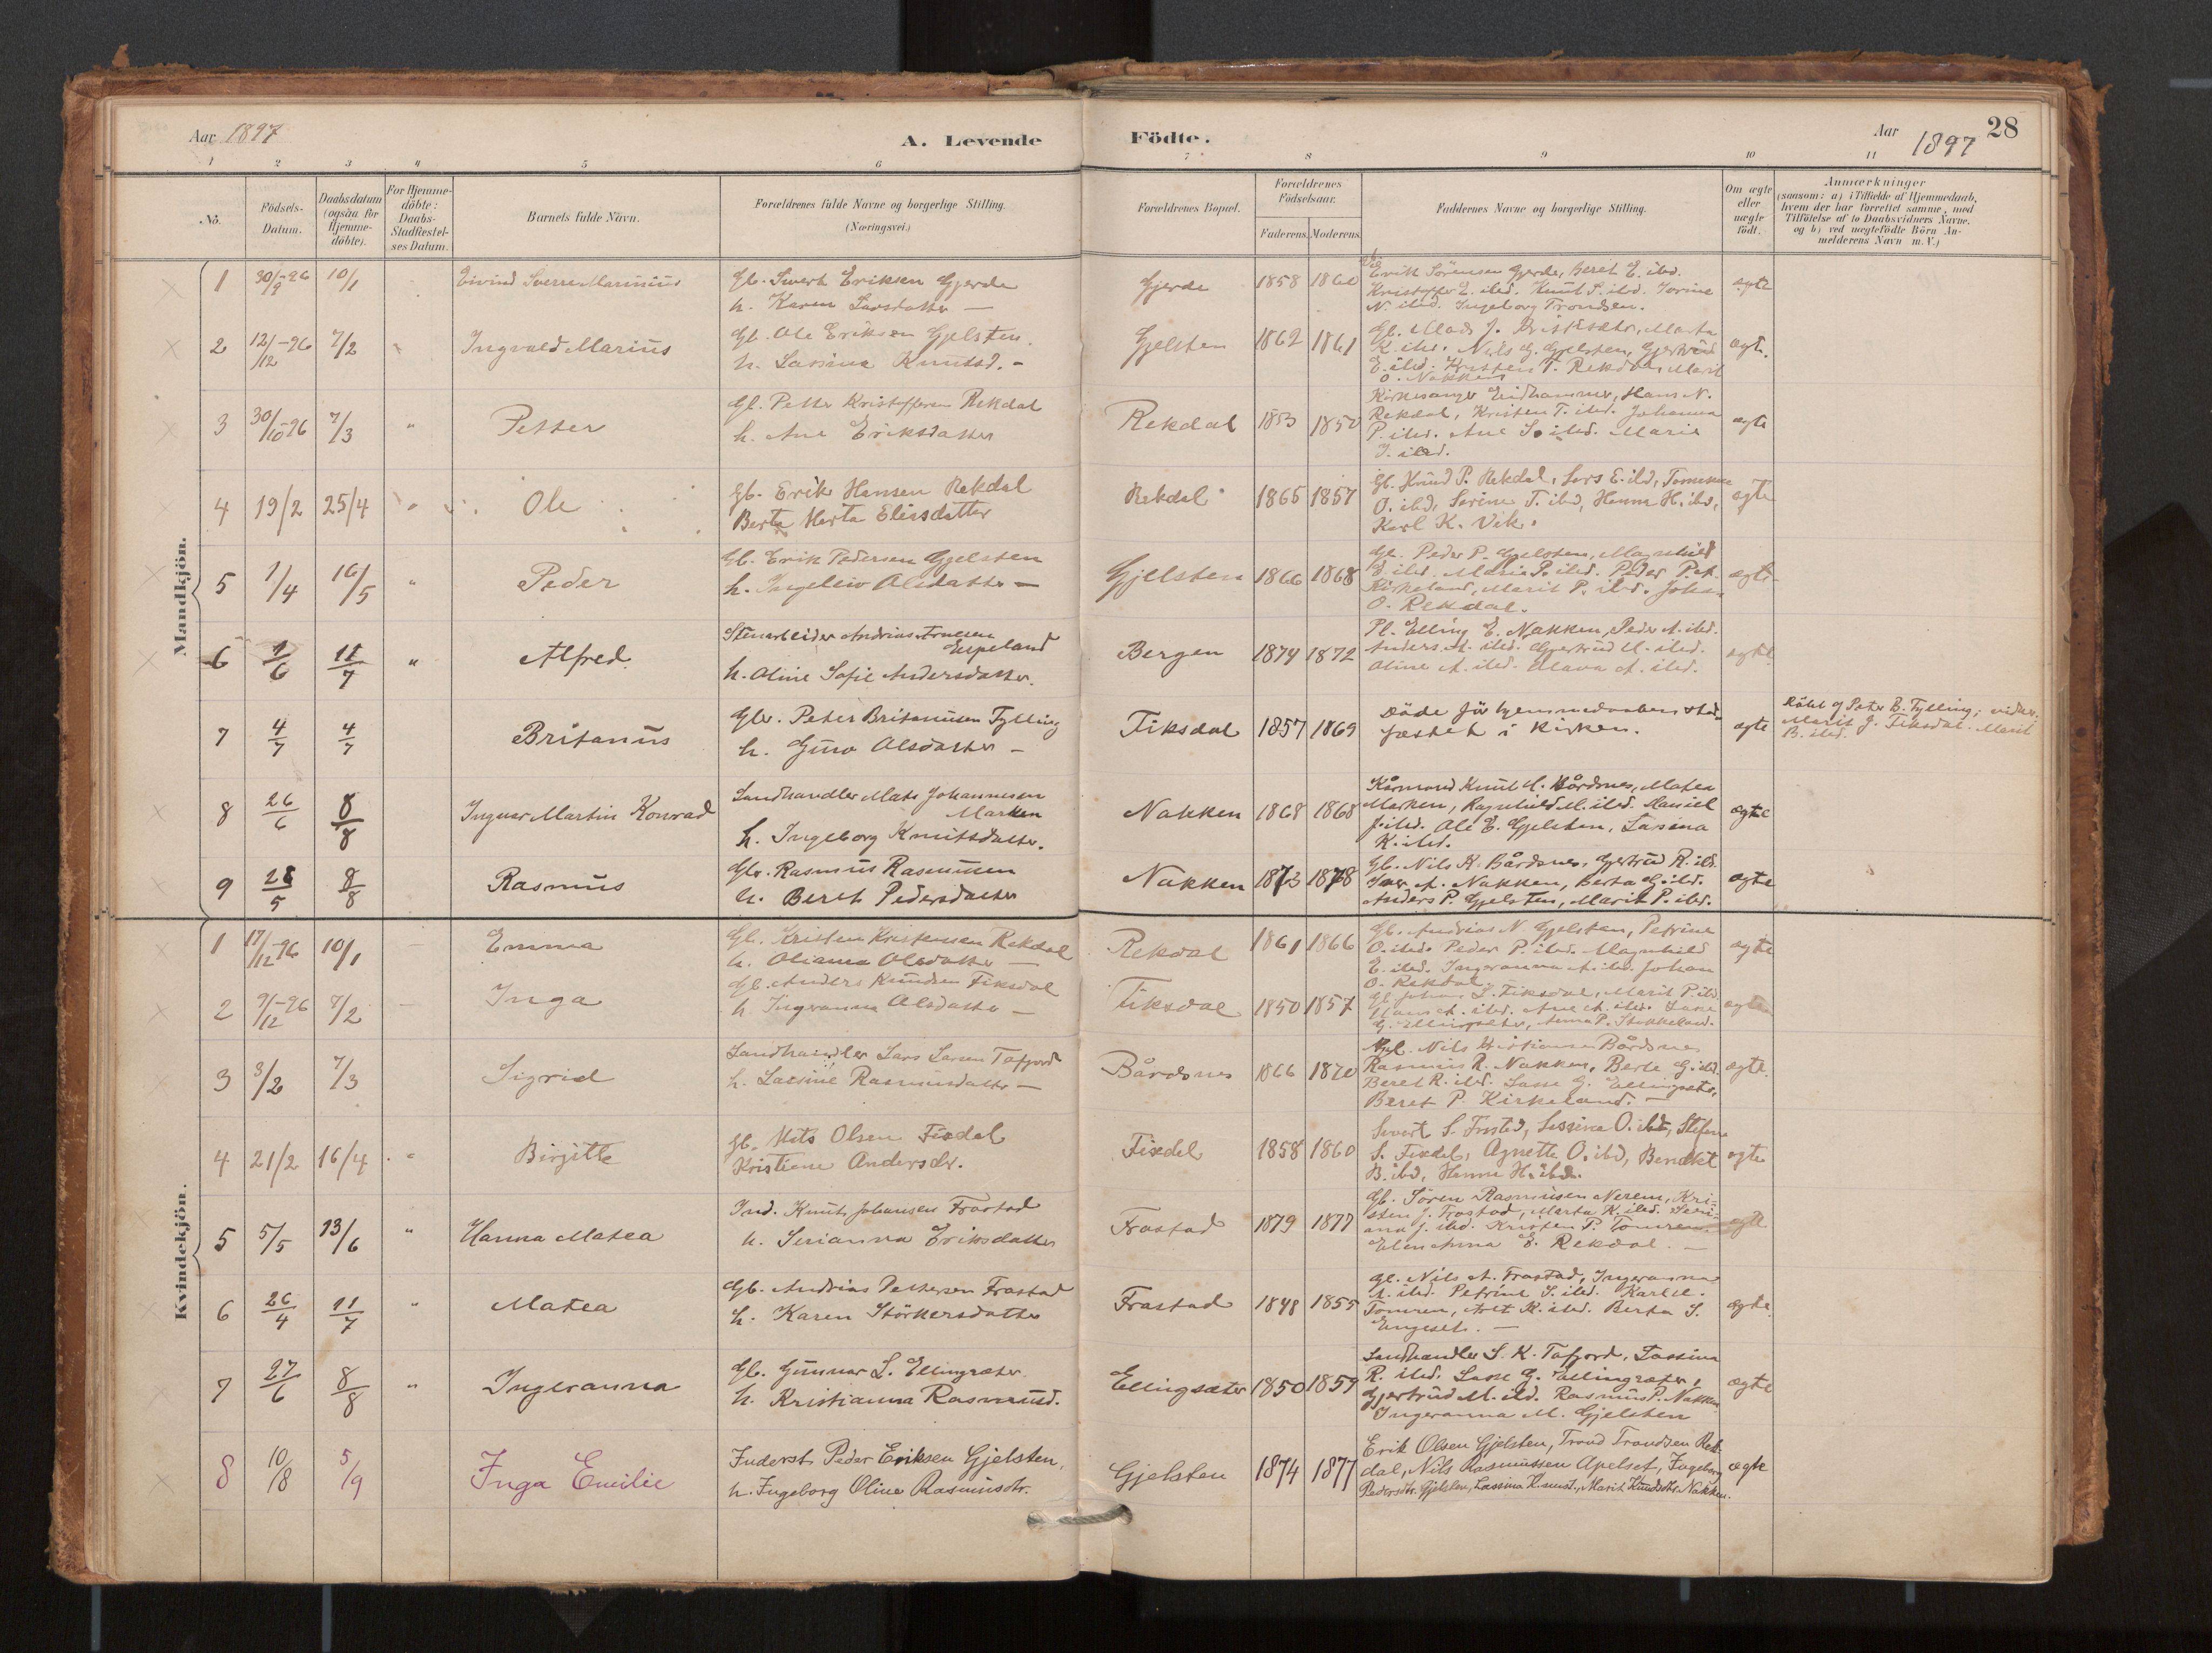 Aar 1897
A. Levende
Födte.
Aar 1897
28
1 2 3 4 5 6 7 8 9 10 11
No.
Födsels-
Datum.
Daabsdatum
(ogsaa for
Hjemme-
döbte).
For Hjemme-
döbte:
Daabs-
Stadfæstel-
ses Datum.
Barnets fulde Navn.
Forældrenes fulde Navne og borgerlige Stilling.
(Næringsvei.)
Forældrenes Bopæl.
Forældrenes
Födselsaar.
Faderens. Moderens.
Faddernes Navne og borgerlige Stilling.
Om ægte
eller
uægte
födt.
Anmærkninger
(saasom: a) i Tilfælde af Hjemmedaab,
hvem der har forrettet samme, med
Tilföielse af to Daabsvidners Navne.
og b) ved uægtefödte Börn An-
melderens Navn m. V.)
Mandkjön.
1 30/9-96 10/1 Eivind Sverre Marinius
Gb. Sivert Eriksen Gjerde
h. Karen Larsdatter —
Gjerde 1858 1860
Erik Sörensen Gjerde, Beret E. ibd.
Kristoffer E. ibd. Knut S. ibd. Jorine
N. ibd. Ingeborg Trondsen.
ægte
2 12/12-96 7/2 " Ingvald Marius
Gb. Ole Eriksen Gjelsten.
h. Lassina Knutsd. -
Gjelsten 1862 1861
Gb. Mads J. Marta
K. ibd. Nils G. Gjelsten, Gjertrud
E. ibd. Kristen T. Rekdal, Marit
O. Nakken
ægte.
3 30/10-96 7/3 " Petter
Gb. Petter Kristoffersen Rekdal
h. Ane Eriksdatter
Rekdal 1853 1850
Kirkesanger Eidhammer, Hans N.
Rekdal, Kristen T. ibd. Johanna
P. ibd. Ane S. ibd. Marie
J. ibd.
ægte
4 19/2 25/4 " Ole
Gb. Erik Hansen Rekdal
Berta Marta Eliasdatter
Rekdal 1865 1857
Gb. Knud P. Rekdal, Lars E. ibd,
O. ibd, Serine T. ibd, Hanna H. ibd,
Karl K. Vik.
ægte
5 1/4 16/5 " Peder
Gb. Erik Pedersen Gjelsten
h. Ingeleiv Olsdatter —
Gjelsten 1866 1868
Gb. Peder P. Gjelsten, Magnhild
E. ibd. Maria P. ibd. Peder P.
Kirkeland, Marit P. ibd. Johan
O. Rekdal.
ægte
6 1/6 11/7 " Alfred.
Stenarbeider Andrias Arnesen
Espeland
h. Oline Sofie Andersdatter.
Bergen 1874 1872
Pl. Elling E. Nakken, Peder A. ibd.
Anders A. ibd. Gjertrud M. ibd.
Oline A. ibd. Olava A. ibd.
ægte
7 4/7 4/7 Britanus
Gbr. Peter Britanusen Tylling
h. Guro Olsdatter —
Fiksdal 1857 1869
Döde för hjemmedaaben stad-
fæstet i Kirken.
ægte
Döbt af Peter B. Tylling; vidner:
Marit J. Fiksdal. Marit
B. ibd.
8 26/6 8/8 Ingvar Martin Konrad
Landhandler Mats Johannesen
Marken
h. Ingeborg Knutsdatter.
Nakken 1868 1868
Kårmand Knut M. Bårdsnes, Matea
Marken, Ragnhild M. ibd. Daniel
J. ibd. Ole E. Gjelsten, Lasina
K. ibd.
ægte
9 28/5 8/8 Rasmus
Gbr. Rasmus Rasmusen
h. Beret Pedersdatter
Nakken 1873 1878
Gb. Nils K. Bårdsnes, Gjertrud R. ibd.
Iver A. Nakken, Berta G. ibd.
Anders P. Gjelsten, Marit P. ibd.
ægte
Kvindekjön.
1 17/12-96 10/1 — Emma
Gb. Kristen Kristensen Rekdal
h. Olianna Olsdatter —
Rekdal 1861 1866
Gb. Andrias N. Gjelsten, Petrine
O. ibd. Peder P. ibd. Magnhild
E. ibd. Ingeranna A. ibd. Johan
O. Rekdal.
ægte
2 9/12-96 7/2 — Inga
Gb. Anders Knudsen Fiksdal
h. Ingeranna Olsdatter —
Fiksdal 1850 1857
Gb. Johan L. Fiksdal, Marit P. ibd.
Hans A. ibd. Ane A. ibd. Lasse
G. Ellingsæter, Anna P. Stokkeland.
ægte
3 3/2 7/3 Sigrid
Landhandler Lars Larsen Tafjord
h. Lassine Rasmusdatter —
Bårdsnes 1866 1870
Gb. Nils Kristiansen Bårdsnes
Rasmus R. Nakken, Berte G. ibd.
Beret R. ibd. Lasse G. Ellingsæter,
Beret P. Kirkeland. —
ægte.
4 21/2 16/4 " Birgitte
Gb. Mats Olsen Fixdal
Kristiane Andersdr.
Fixdal 1858 1860
Sivert S. Frostad, Lassina O. ibd, Stefan
S. Fixdal, Agnette O. ibd, Benedikt
B. ibd, Hanna H. ibd.
ægte
5 5/5 13/6 " Hanna Matea
Ind. Knut Johansen Frostad
h. Serianna Eriksdatter
Frostad 1879 1877
Gb. Sören Rasmusen Nerem, Kri-
sten J. Frostad, Marta K. ibd. Seri-
ana J. ibd. Kristen P. Tomren
Elen Anna E. Rekdal. —
ægte
6 26/4 11/7 " Matea
Gb. Andrias Pettersen Frostad
h. Karen Störkersdatter
Frostad 1848 1855
Gb. Nils A. Frostad, Ingeranna
A. ibd. Petrine S. ibd. Karl E.
Tomren, Anet K. ibd. Berta S.
Engeset. —
ægte
7 27/6 8/8 " Ingeranna
Gb. Gunnar L. Ellingsæter.
h. Kristianna Rasmusd.
Ellingsæter 1850 1859
Landhandler L. K. Tafjord, Lassina
R. ibd. Lasse G. Ellingsæter,
Gjertrud M. ibd. Rasmus P. Nakken
Ingeranna M. Gjelsten
ægte
8 10/8 5/9 Inga Emilie
Inderst. Peder Eriksen Gjelsten,
h. Ingeborg Oline Rasmusdtr.
Gjelsten 1874 1877
Erik Olsen Gjelsten, Trond Trondsen Rek-
dal, Nils Rasmussen Apelset, Ingeborg
Pedersdtr. Gjelsten, Lassina Knutsd., Marit Knudsdtr. Nakken.
ægte